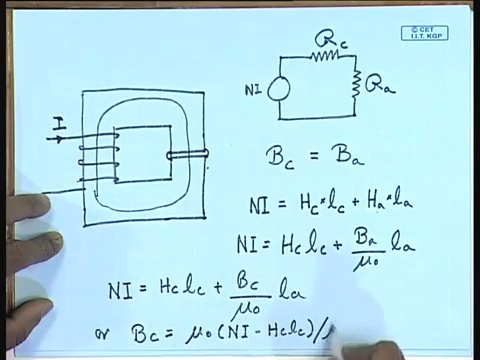 © CET
I.I.T. KGP
R_c
NI
R_a
I
B_c = B_a
NI = H_c * l_c + H_a * l_a
NI = H_c l_c + B_a/μ₀ l_a
NI = H_c l_c + B_c/μ₀ l_a
or B_c = μ₀ (NI - H_c l_c)/